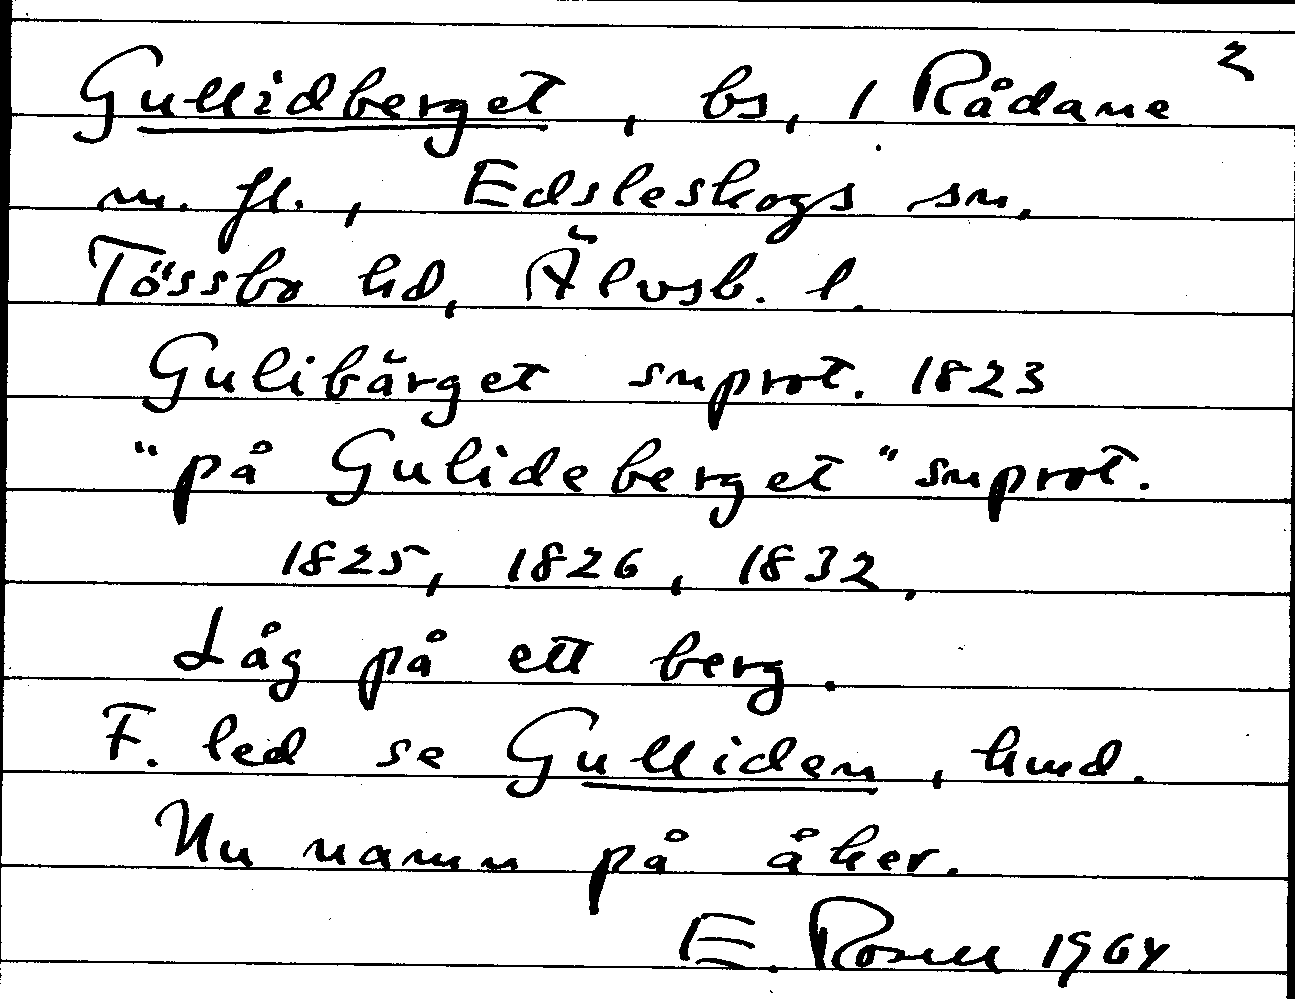 Gullidberget, bs, 1 Rådane 2
m. fl., Edsleskogs sn,
Tössbo hd, Älvsb. l.
Gulibärget snprot. 1823
"på Gulideberget" snprot.
1825, 1826, 1832.
Låg på ett berg.
F. led se Gulliden, hmd.
Nu namn på åker.
E. Rosell 1964